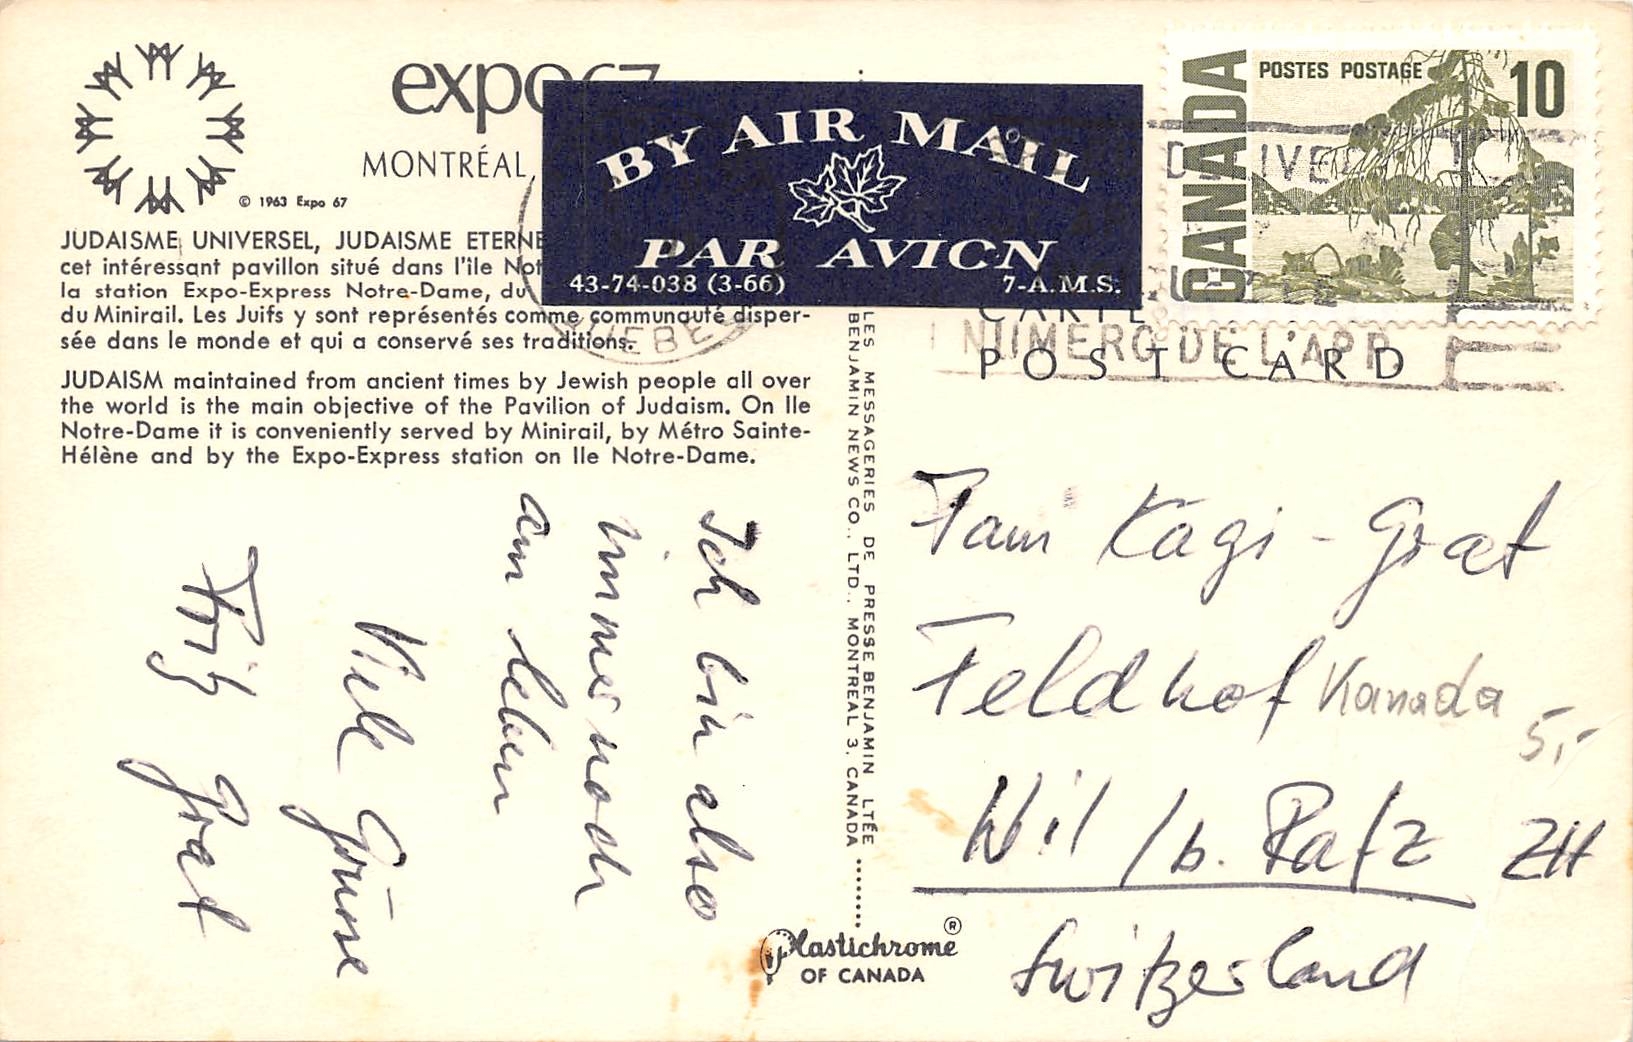 expo67
MONTRÉAL,
© 1963 Expo 67
BY AIR MAIL
PAR AVION
43-74-038 (3-66)
7-A.M.S.
CANADA
POSTES POSTAGE
10
JUDAISME UNIVERSEL, JUDAISME ETERNE
cet intéressant pavillon situé dans l'île Not
la station Expo-Express Notre-Dame, du
du Minirail. Les Juifs y sont représentés comme communauté disper-
sée dans le monde et qui a conservé ses traditions.
JUDAISM maintained from ancient times by Jewish people all over
the world is the main objective of the Pavilion of Judaism. On Ile
Notre-Dame it is conveniently served by Minirail, by Métro Sainte-
Hélène and by the Expo-Express station on Ile Notre-Dame.
NUMERO DE L'APP
CARTE
POST CARD
LES MESSAGERIES DE PRESSE BENJAMIN LTÉE
BENJAMIN NEWS CO., LTD., MONTREAL 3, CANADA
Ich bin also
immer noch
am leben
Viele Grüsse
Fritz Graf
Fam Kägi - Graf
Feldhof
Kanada
5,-
Wil /b. Rafz ZH
Switzerland
Plastichrome ®
OF CANADA